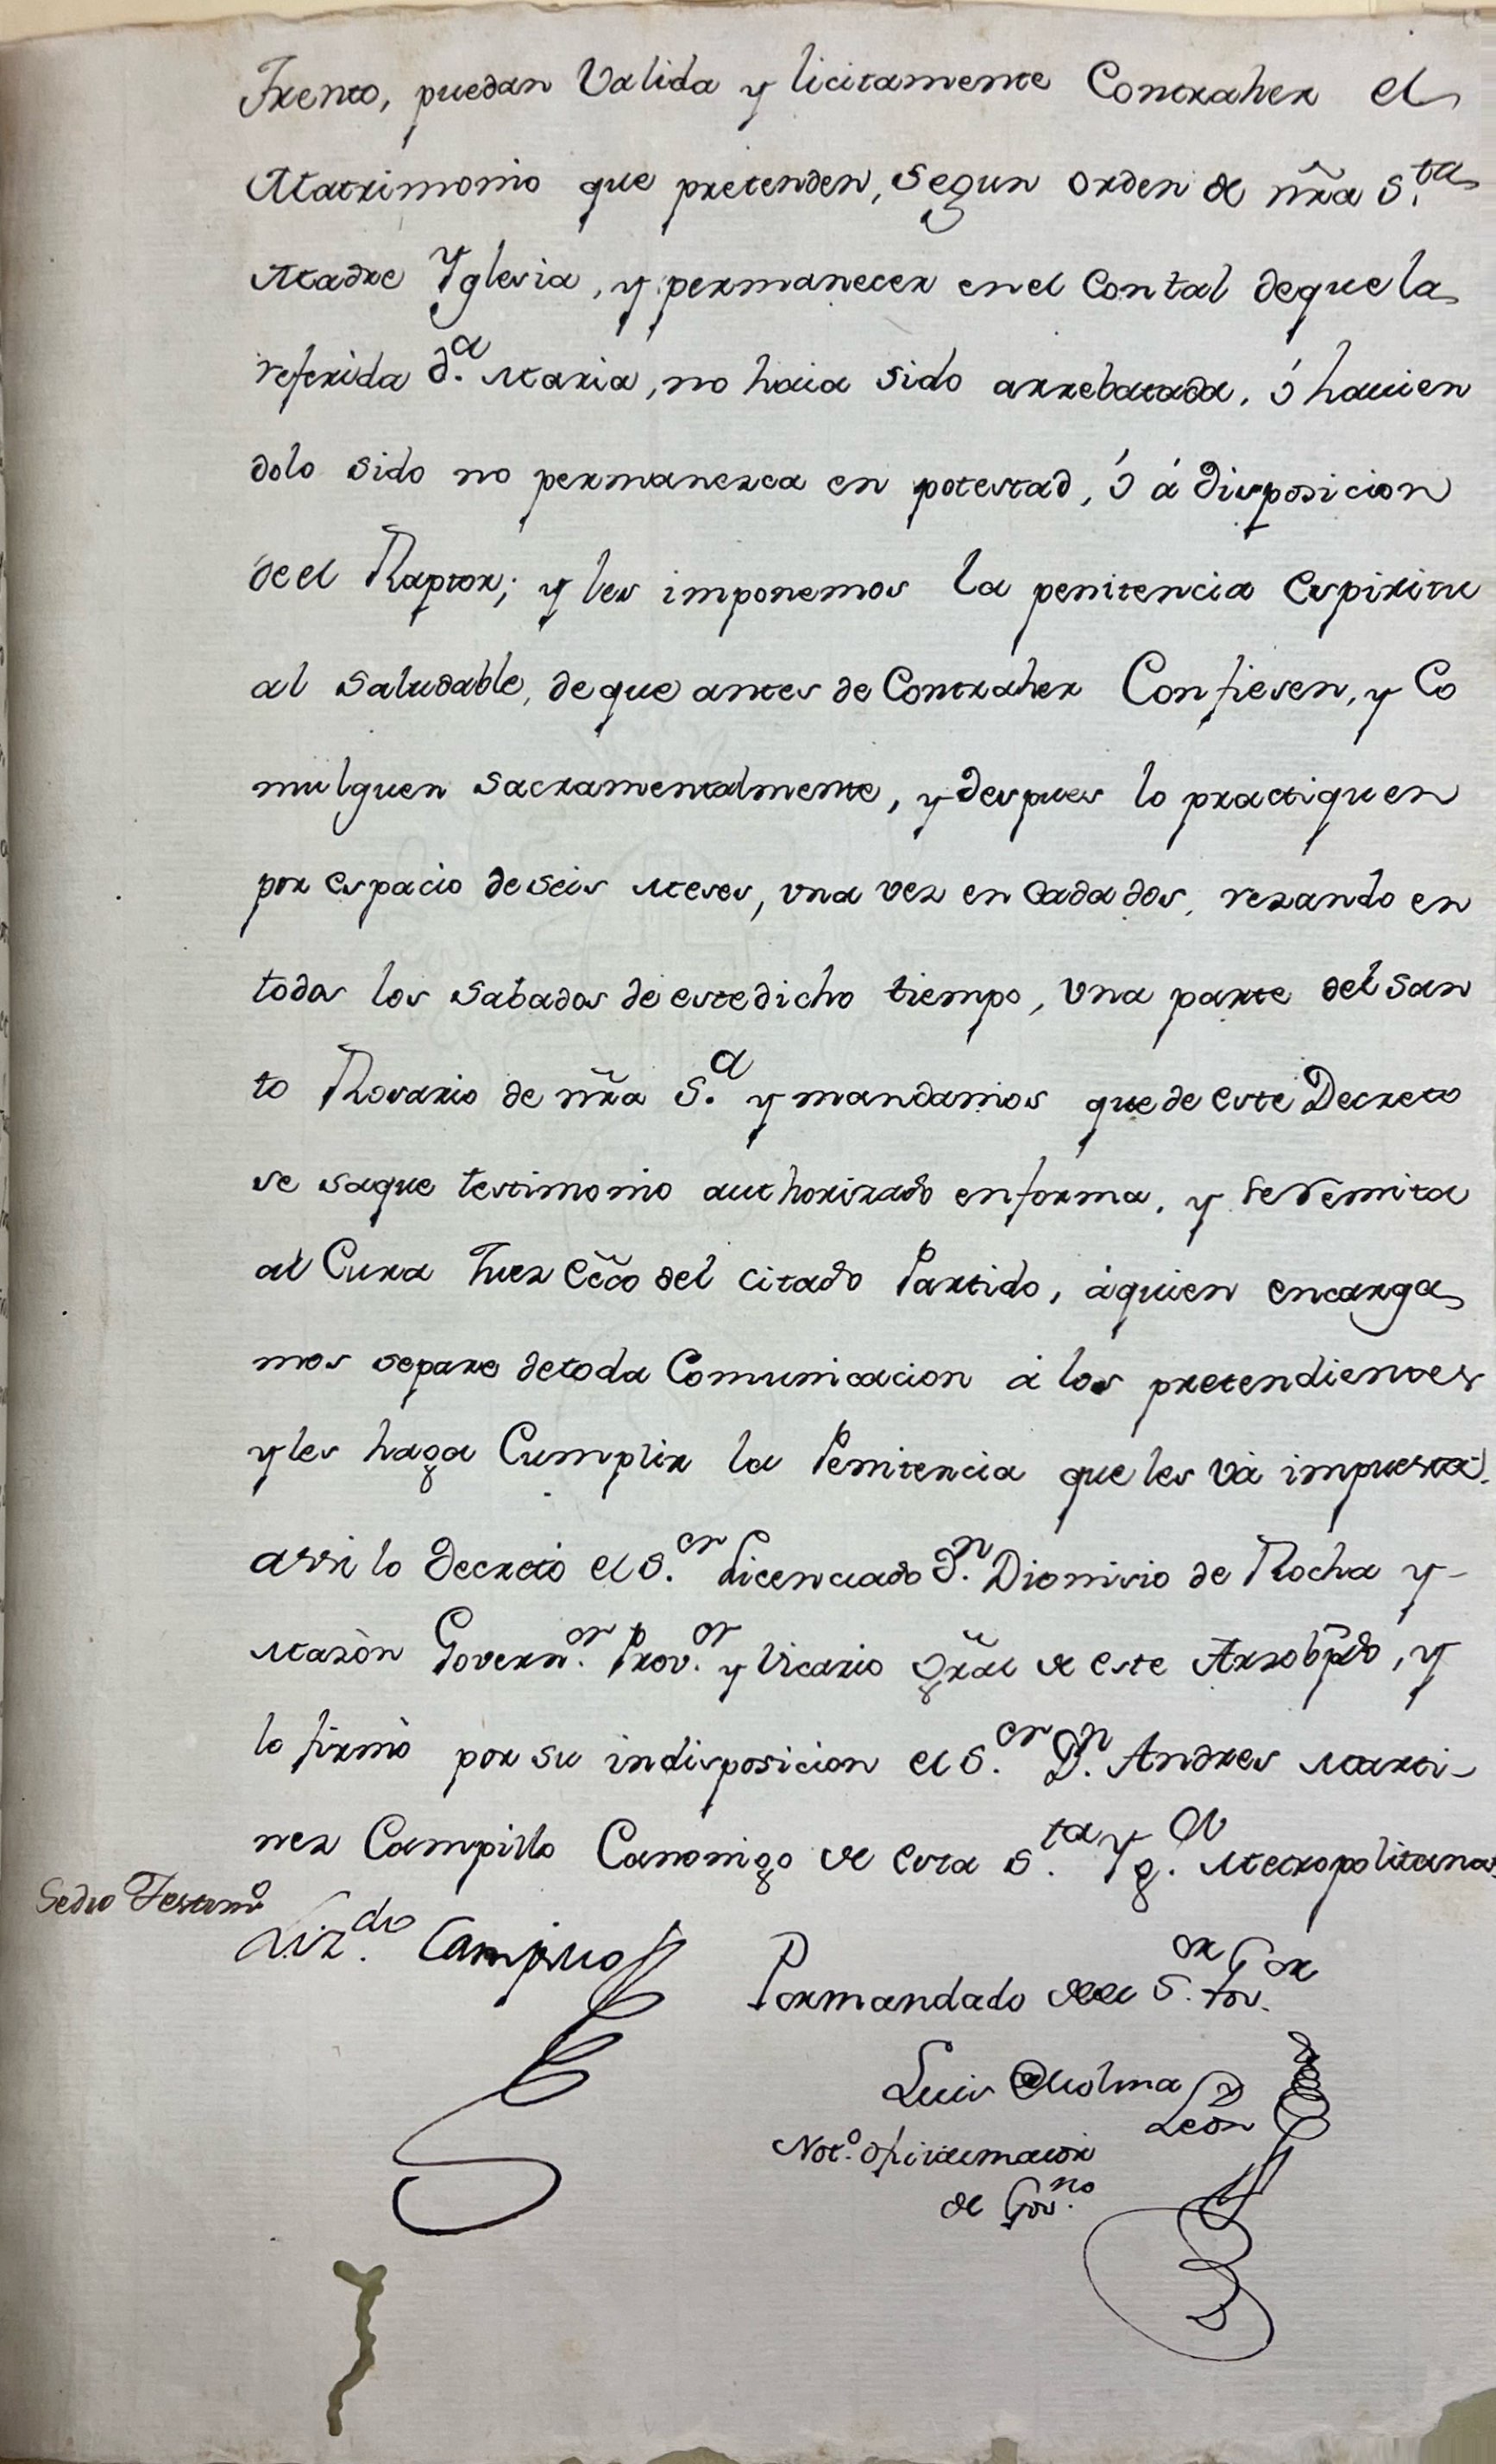 Trento, puedan Valida y licitamente Contraher el
Matrimonio que pretenden, segun orden de nr̃a S.ta
Madre Yglesia, y permanecer en el Con tal deque la
referida d.a Maria, no haia sido arrebatada, ó havien
dolo sido no permanezca en potestad, ó á disposicion
de el Raptor; y les imponemos la penitencia espiritu
al saludable, de que antes de Contraher Confiesen, y Co
mulguen sacramentalmente, y despues lo practiquen
por espacio de seis Meses, una vez en cada dos, rezando en
todos los sabados de este dicho tiempo, Una parte del San
to Rosario de nr̃a S.a y mandamos que de este Decreto
se saque testimonio authorizado en forma, y se remita
al Cura Juez ecc̃o del citado Partido, á quien encarga
mos separe de toda Comunicacion á los pretendientes
y les haga Cumplir la Penitencia que les vá impuesta.
assi lo decretó el S.or Licenciado D.n Dionisio de Rocha y
Mazòn Govern.or Prov.or y Vicario Gr̃al de este Arzobp̃do, y
lo firmò por su indisposicion el S.or D.n Andres Marti-
nez Campillo Canonigo de esta S.ta Yg.a Metropolitana
Sedio Testim.o
Liz.do Campillo
Por mandado de el S.or Gov.or
Luis de Molina
Leon
Not.o
de Gov.no